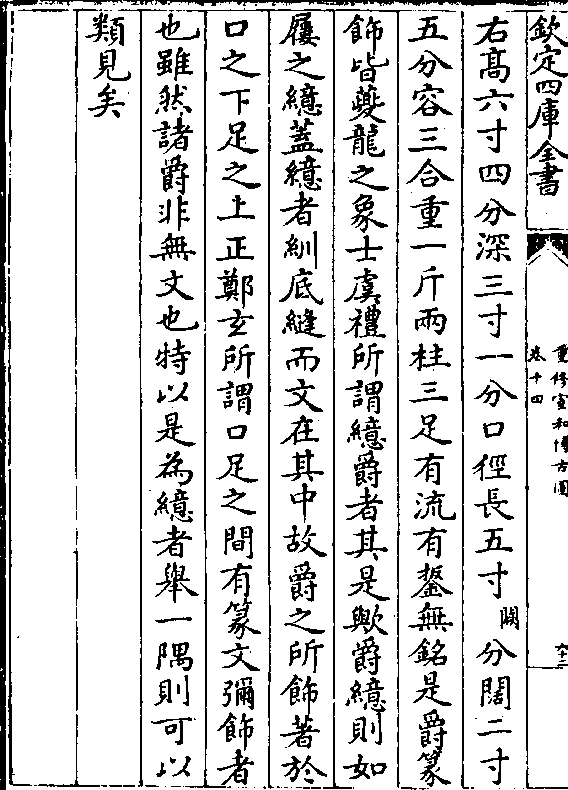 欽定四庫全書
重修宣和博古圖
卷十四
六十二
右高六寸四分深三寸一分口徑長五寸闕分闊二寸
五分容三合重一斤兩柱三足有流有鋬無銘是爵篆
飾皆夔龍之象士虞禮所謂繶爵者其是歟爵繶則如
屨之繶蓋繶者紃底縫而文在其中故爵之所飾著於
口之下足之上正鄭玄所謂口足之間有篆文彌飾者
也雖然諸爵非無文也特以是為繶者舉一隅則可以
類見矣